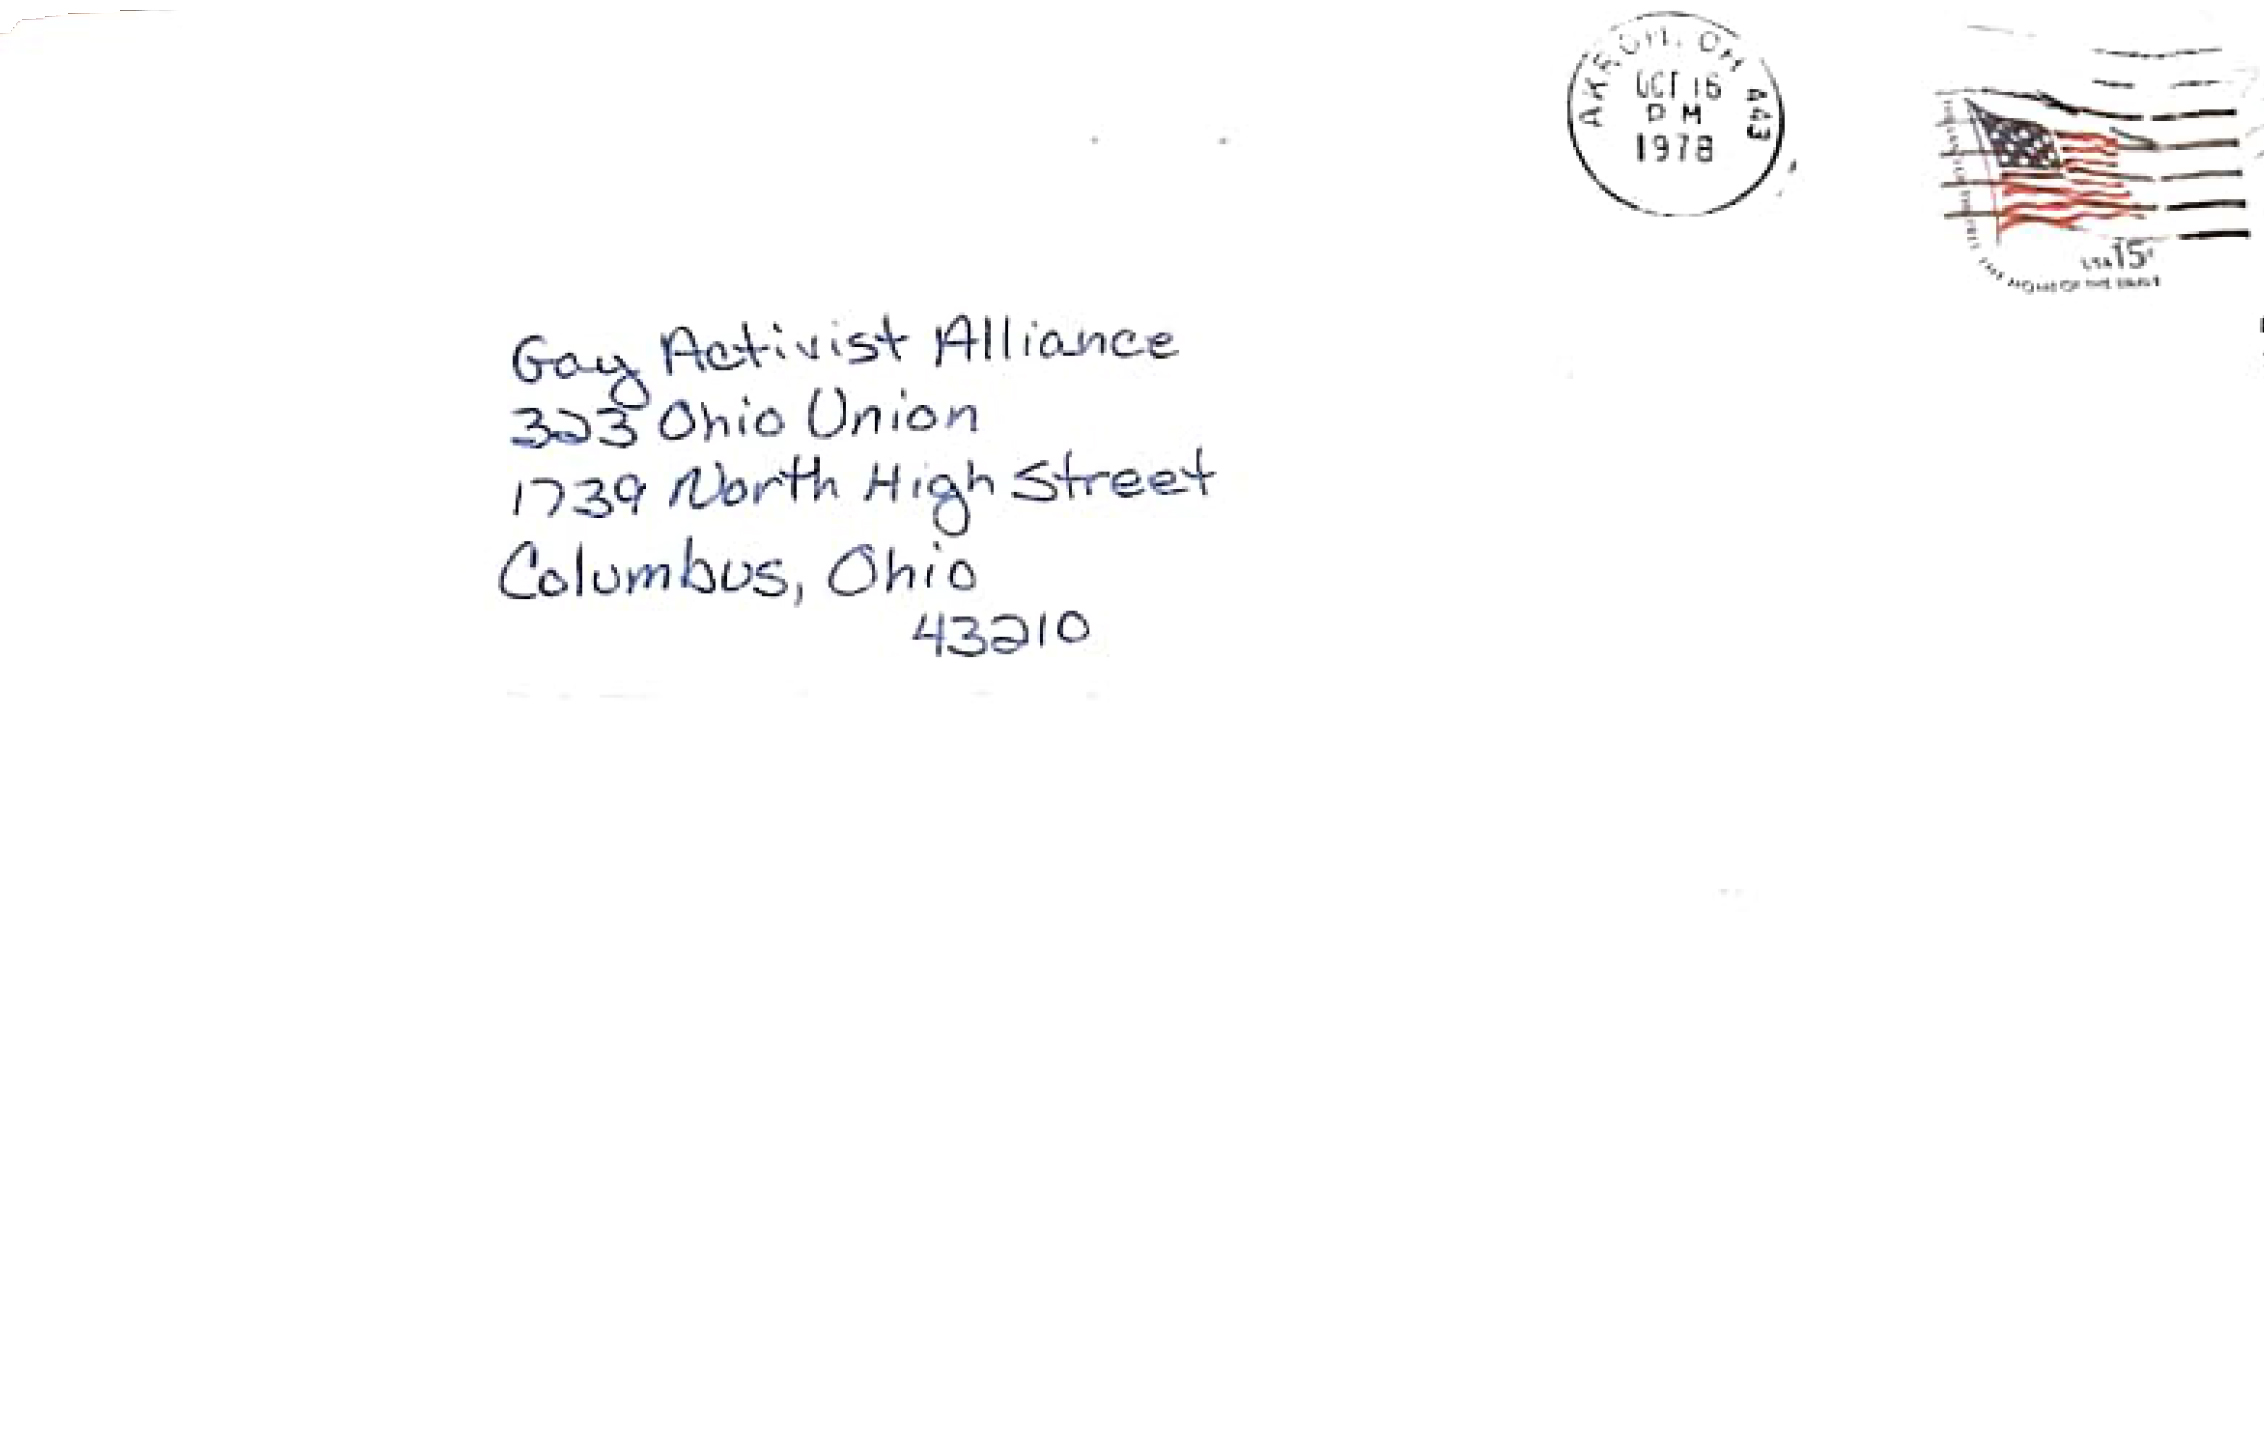 AKRON, OH 443
OCT 16
PM
1978
USA 15c
THE LAND OF THE FREE THE HOME OF THE BRAVE
Gay Activist Alliance
323 Ohio Union
1739 North High Street
Columbus, Ohio
43210